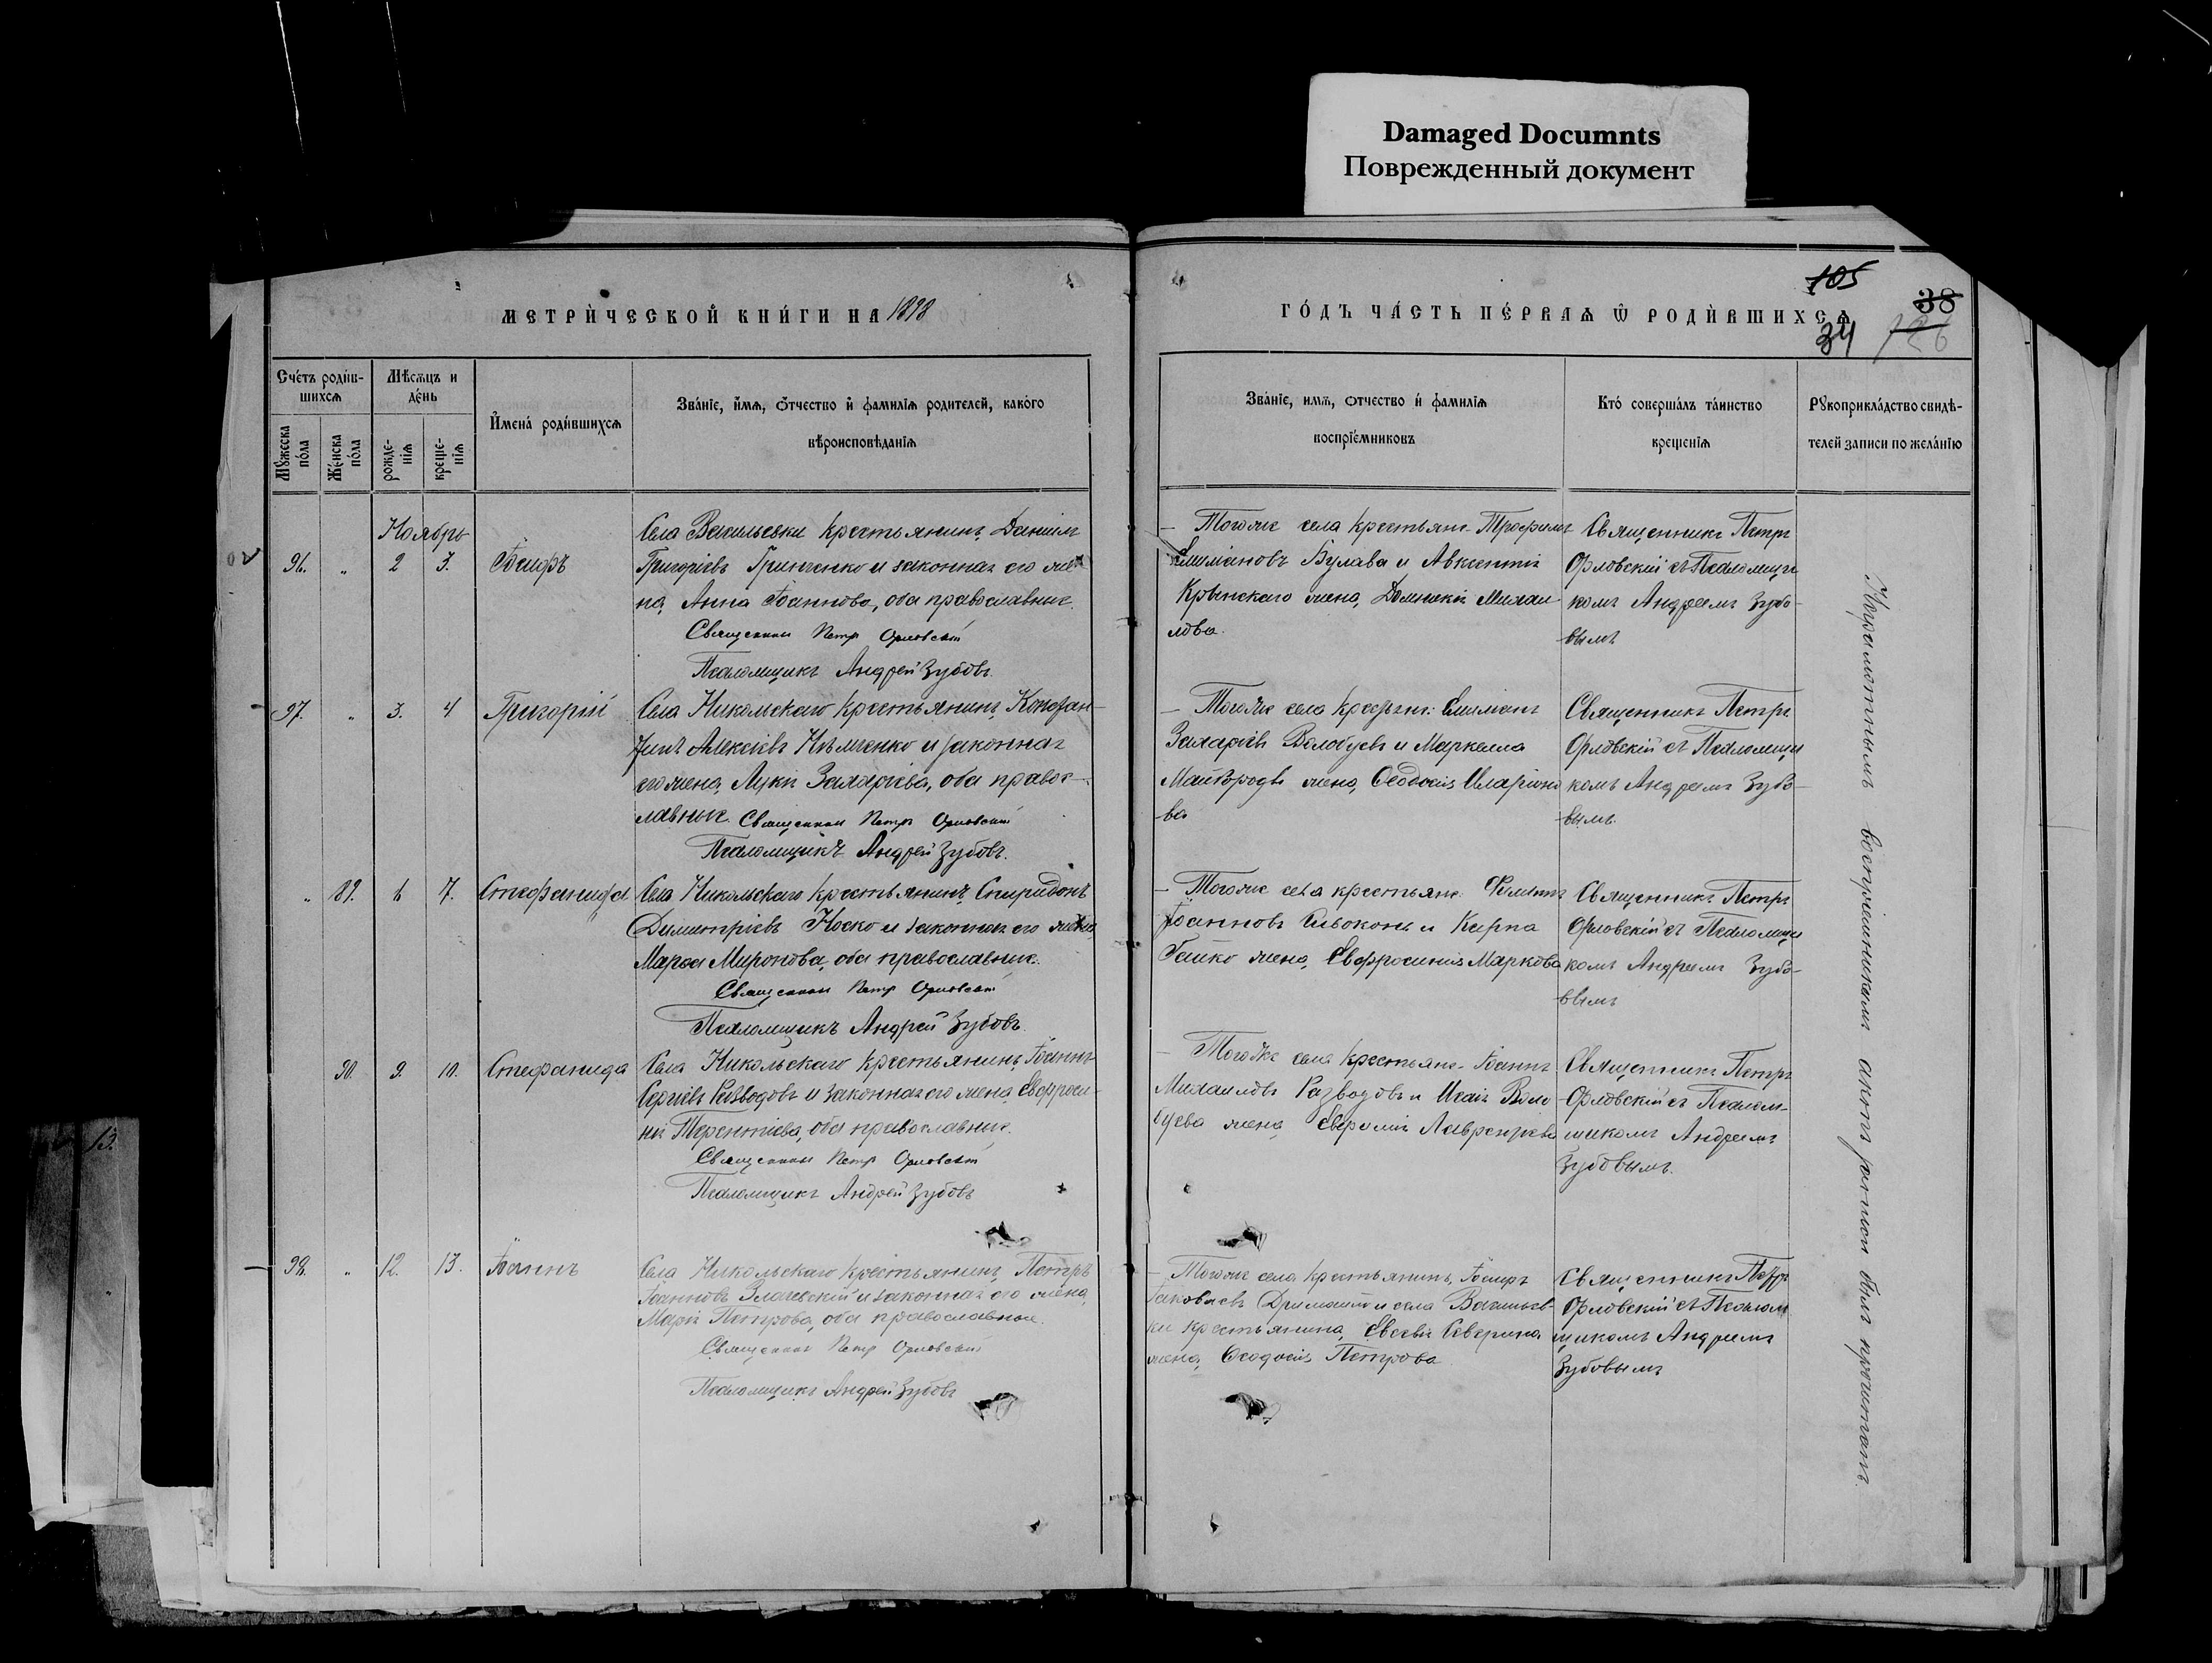 Damaged Documnts
Поврежденный документ
МЕТРИЧЕСКОЙ КНИГИ НА 1898
ГОДЪ ЧАСТЬ ПЕРВАЯ Ѡ РОДИВШИХСЯ
105
38
34
Счетъ родив-
шихся
Мѣсяцъ и
день
Мужеска
пола
Женска
пола
рожде-
нія
креще-
нія
Имена родившихся
Званіе, имя, отчество и фамилія родителей, какого
вѣроисповѣданія
Званіе, имя, отчество и фамилія
воспріемниковъ
Кто совершалъ таинство
крещенія
Рукоприкладство свидѣ-
телей записи по желанію
Ноябрь
96. " 2 3. Іосифъ
Села Васильевки крестьянинъ Даніилъ
Григоріевъ Гринченко и законная его же
на Анна Іоаннова, оба православные.
Священникъ Петръ Орловскій
Псаломщикъ Андрей Зубовъ.
Тогоже села крестьян. Трофимъ
Булава и Авксентія
Крынскаго жена, Домникія Михаи
лова.
Священникъ Петръ
Орловскій съ Псаломщи
комъ Андреемъ Зубо-
вымъ
97. " 3. 4 Григорій
Села Никольскаго крестьянинъ,
Алексіевъ Нѣмченко и законная
его жена, Захаріева, оба правос-
лавные. Священникъ Петръ Орловскій
Псаломщикъ Андрей Зубовъ.
Тогоже села крестьян:
Захаріевъ и Маркелла
жена, Ѳеодосія Иларіоно
ва
Священникъ Петръ
Орловскій съ Псаломщи
комъ Андреемъ Зубо-
вымъ.
" 89. 6 7. Стефанида
Села Никольскаго крестьянинъ, Спиридонъ
Димитріевъ Носко и законная его жена
Марѳа Миронова, оба православные.
Священникъ Петръ Орловскій
Псаломщикъ Андрей Зубовъ.
Тогоже села крестьян. Филиппъ
Іоанновъ и Карпа
Гайко жена, Евфросинія Маркова
Священникъ Петръ
Орловскій съ Псаломщи
комъ Андреемъ Зубо-
вымъ
90. 9. 10. Стефанида
Села Никольскаго крестьянинъ, Іоаннъ
Сергіевъ Разводовъ и законная его жена Евфроси-
нія Терентіева, оба православные.
Священникъ Петръ Орловскій
Псаломщикъ Андрей Зубовъ
Тогоже села крестьян. Іоаннъ
Михаиловъ Разводовъ и Исаіи Воло
буева жена, Лаврентіева
Священникъ Петръ
Орловскій съ Псалом-
щикомъ Андреемъ
Зубовымъ.
98. " 12. 13. Іоаннъ
Села Никольскаго крестьянинъ, Петръ
Іоанновъ и законная его жена,
Марія Петрова, оба православные.
Священникъ Петръ Орловскій
Псаломщикъ Андрей Зубовъ
Тогоже села крестьянинъ, Іосифъ
Іаковлевъ и села Васильев-
ки крестьянина, Евсевія Северина
жена, Ѳеодосія Петрова
Священникъ Петръ
Орловскій съ Псалом
щикомъ Андреемъ
Зубовымъ
Неграмотнымъ воспріемникамъ актъ записи былъ прочитанъ
13.